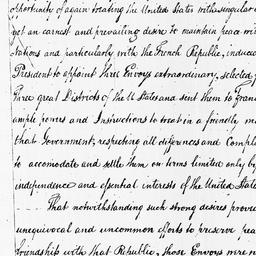 opportunity of again treating the United States with singular
yet an earnest and prevailing desire to maintain peace wi
nations and particularly with the French Republic, induced
President to appoint three Envoys extraordinary, selected f
three great Districts of the U States and sent them to Fran
ample powers and Instructions to treat in a friendly m
that Government, respecting all differences and compl
to accomodate and settle them on terms limited only by
independence and essential interests of the United State
That notwithstanding such strong desires prove
unequivocal and uncommon efforts to preserve pea
friendship with that Republic, those Envoys were n